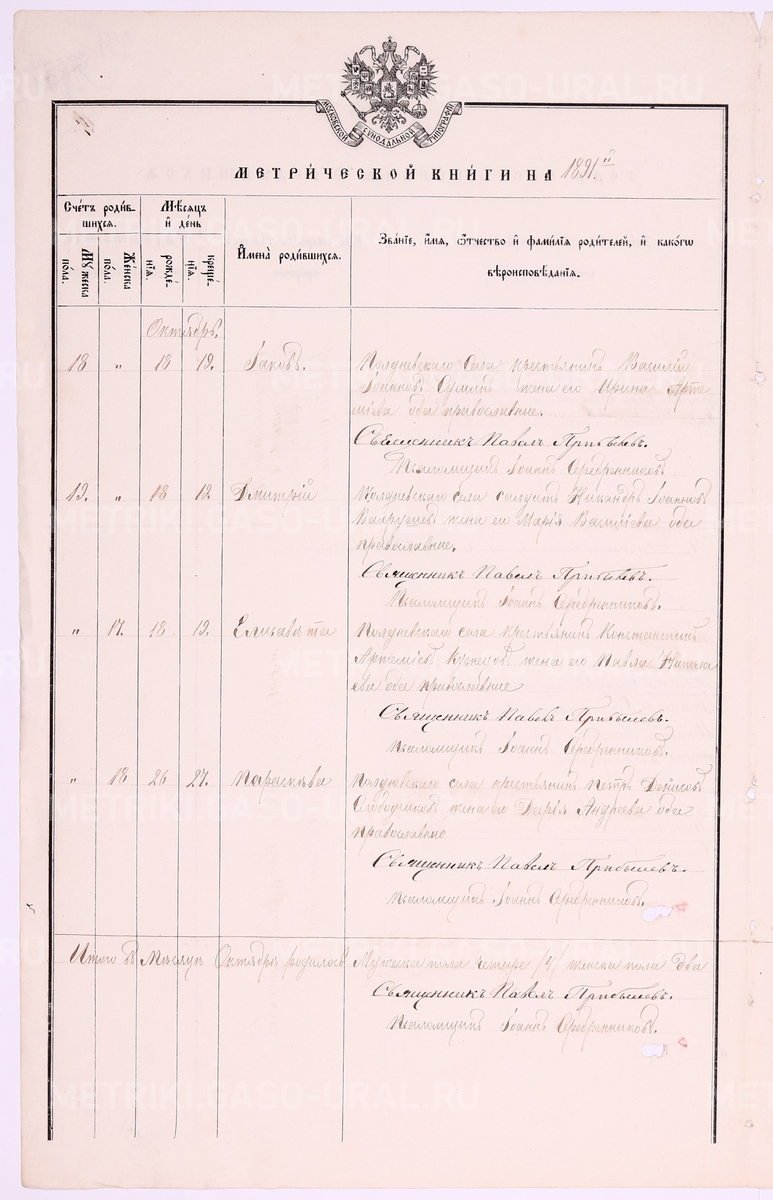 МОСКОВСКОЙ СѴНОДАЛЬНОЙ ТИПОГРАФІИ
МЕТРИ́ЧЕСКОЙ КНИ́ГИ НА 1891.й
Сче́тъ роди́вшихся.
Мѣ́сяцъ и де́нь
Имена̀ роди́вшихся.
Зва́ніе, и́мя, ѻ҆́тчество и фами́лія роди́телей, и како́гѡ вѣроисповѣ́данія.
Мꙋ́жеска по́ла.
Же́нска по́ла.
рожде́нія.
креще́нія.
Октябрь.
18 „ 18 19. Іаковъ. Полдневскаго села крестьянинъ Василій
Іоанновъ жена его Ирина Арте
міева оба православные.
Священникъ Павелъ Прибылевъ.
Псаломщикъ Іоаннъ Серебренниковъ
19. „ 18 19. Дмитрій Полдневскаго села солдатъ Никандръ Іоанновъ
Вахрушевъ жена его Марія Васильева оба
православные.
Священникъ Павелъ Прибылевъ.
Псаломщикъ Іоаннъ Серебренниковъ.
„ 17. 18. 19. Елисавета Полдневскаго села крестьянинъ Константинъ
Артеміевъ Кузнецовъ жена его Павла
ева оба православные
Священникъ Павелъ Прибылевъ.
Псаломщикъ Іоаннъ Серебренниковъ.
„ 18 26 27. Параскева Полдневскаго села крестьянинъ Петръ Денисовъ
жена его Дарія Андреева оба
православные
Священникъ Павелъ Прибылевъ.
Псаломщикъ Іоаннъ Серебренниковъ.
Итого въ Мѣсяцѣ Октябрѣ родилось Мужеска пола четыре /4/ женска пола два
Священникъ Павелъ Прибылевъ.
Псаломщикъ Іоаннъ Серебренниковъ.
METRIKI.GASO-URAL.RU